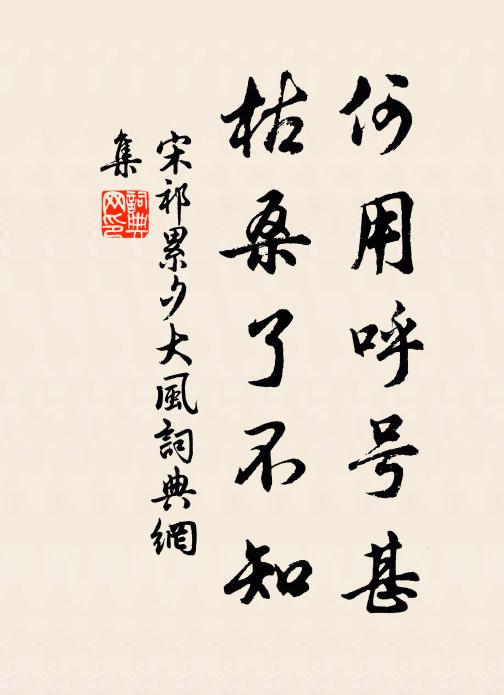 何用呼号甚
枯桑了不知
宋祁累夕大風詞典網
集
詞典网印